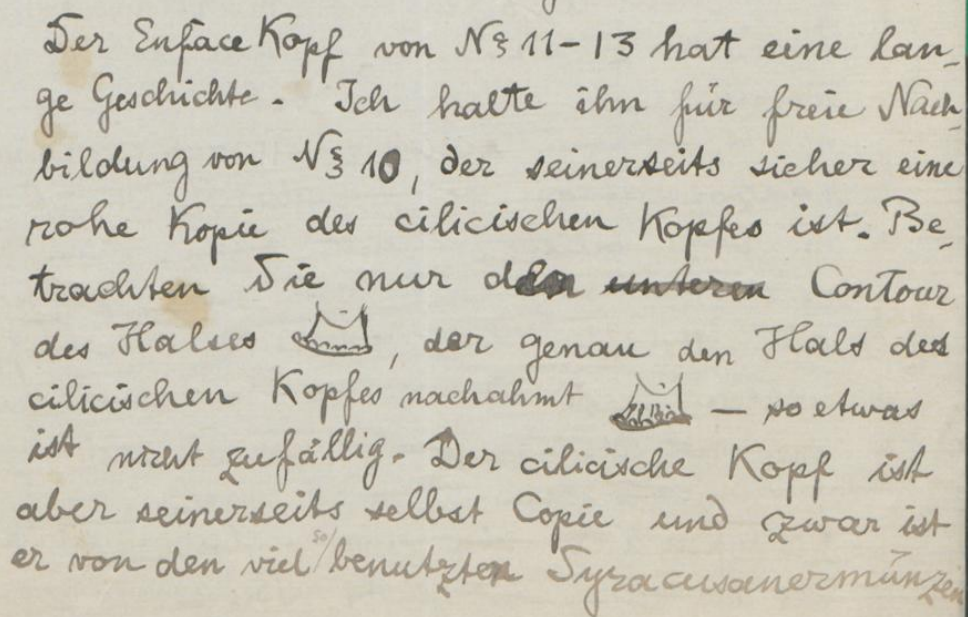 Der Enface Kopf von No 11-13 hat eine lan-
ge Geschichte. Ich halte ihn für freie Nach-
bildung von No 10, der seinerseits sicher eine
rohe Kopie des cilicischen Kopfes ist. Be-
trachten Sie nur den unteren Contour
des Halses, der genau den Hals des
cilicischen Kopfes nachahmt — so etwas
ist nicht zufällig. Der cilicische Kopf ist
aber seinerseits selbst Copie und zwar ist
er von den viel so benutzten Syracusanermünzen